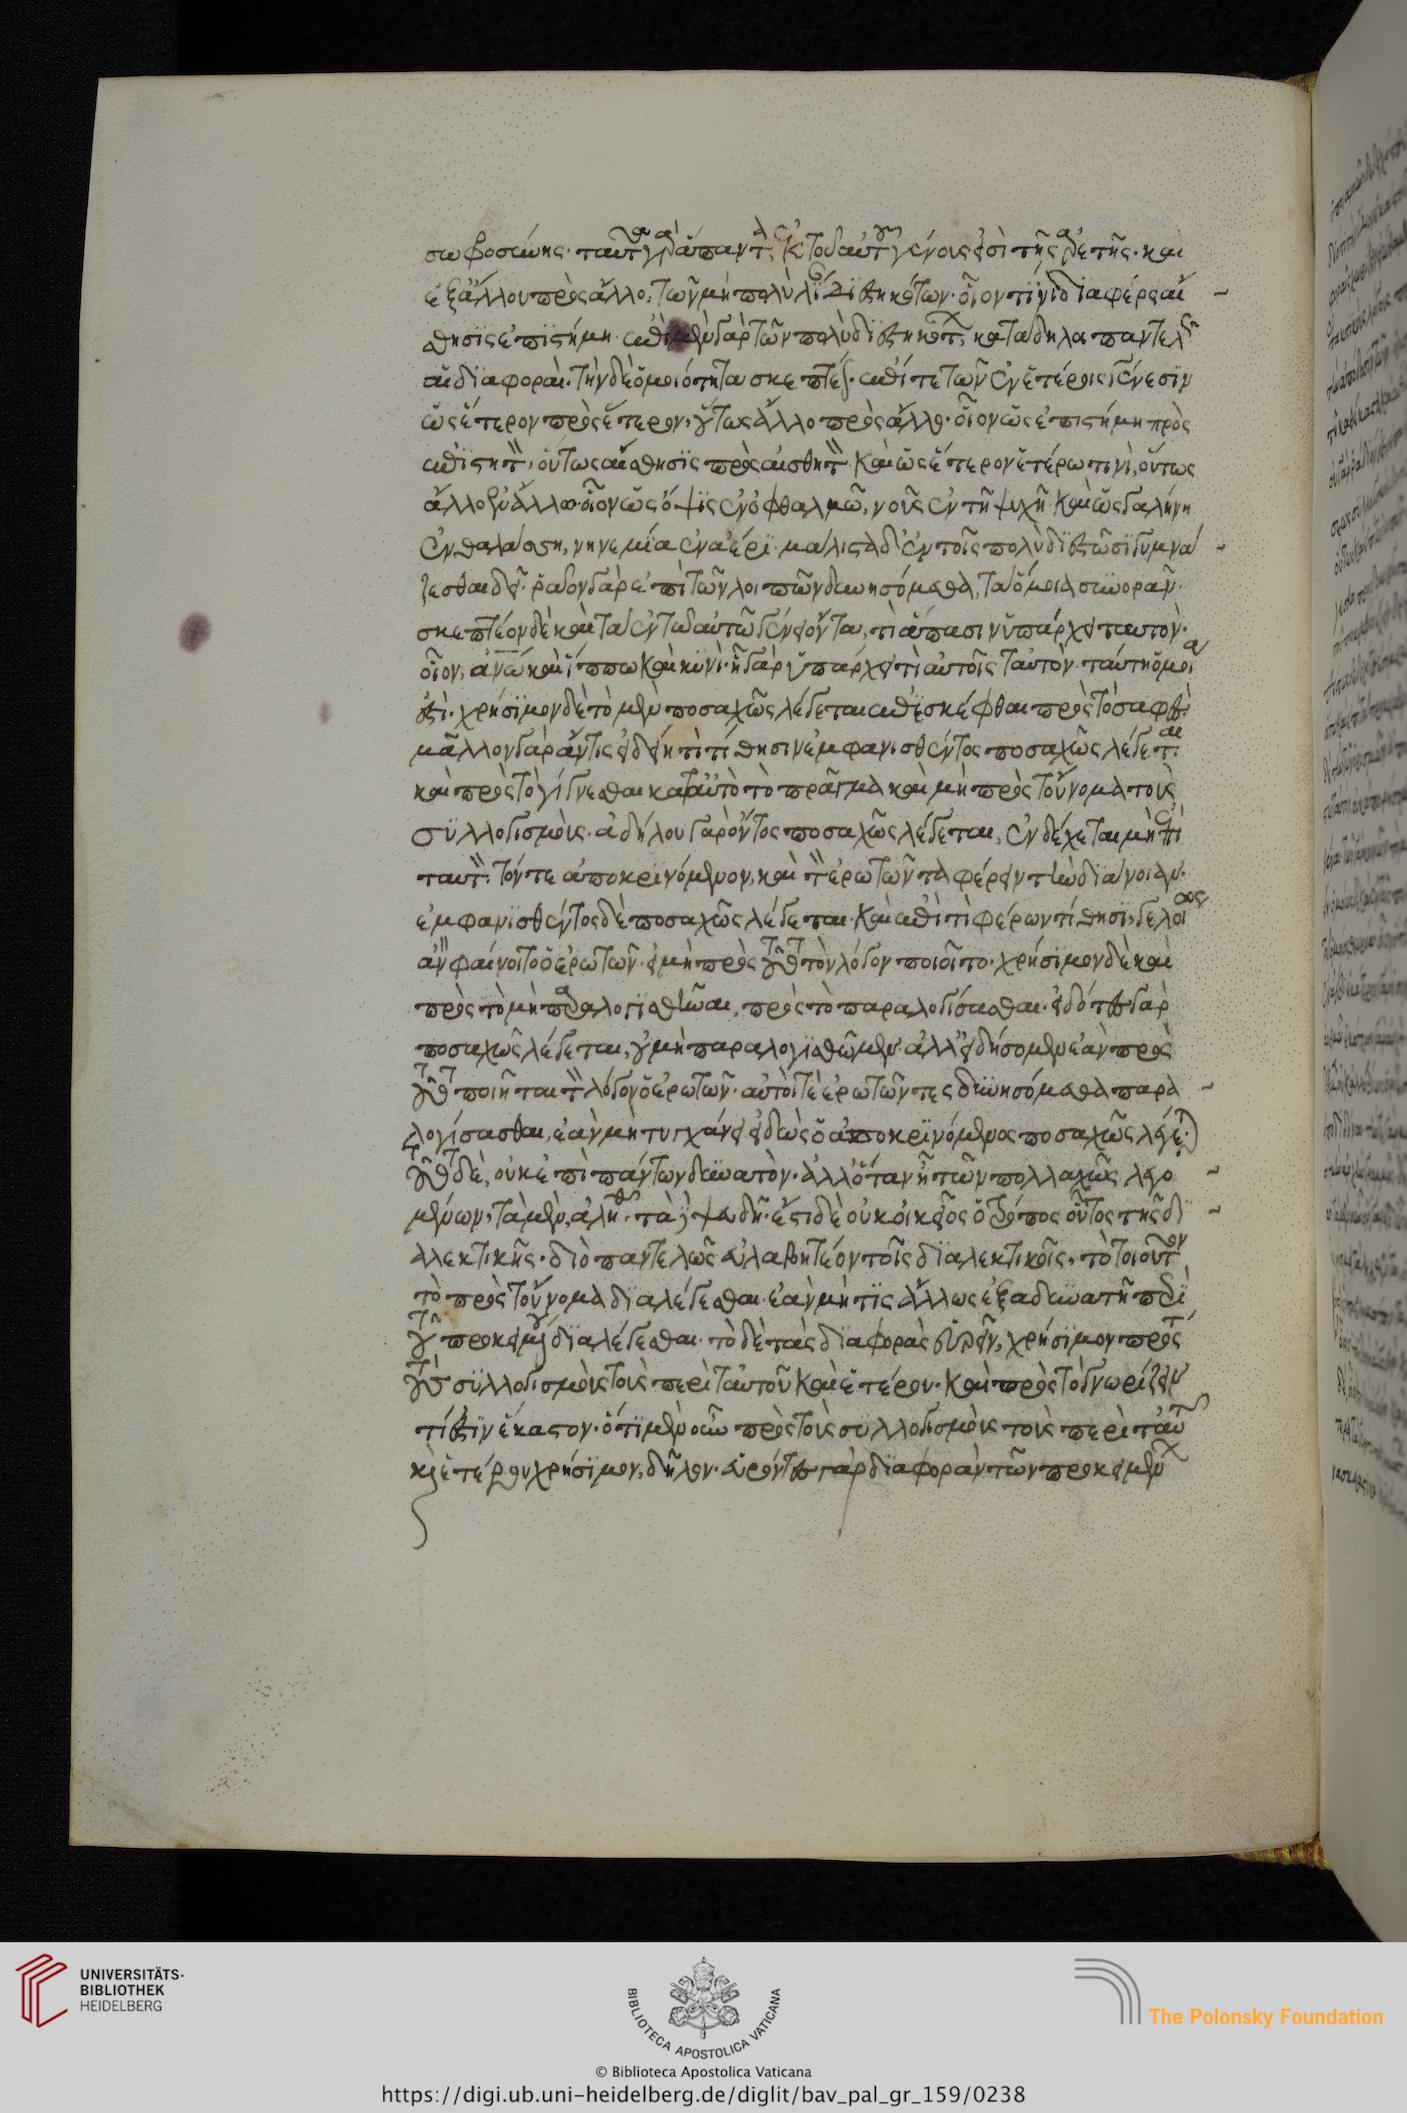 σωφροσύνης· ταῦτα γὰρ ἅπαντα ἐκ τοῦ αὐτοῦ γένους ἐστὶ τῆς ἀρετῆς· καὶ
ἐξ ἄλλου πρὸς ἄλλο, τῶν μὴ πολὺ λίαν διεστηκότων· οἷον τίνι διαφέρει αἴ-
σθησις ἐπιστήμης· ἐπὶ μὲν γὰρ τῶν πολὺ διεστηκότων, κατάδηλα παντελῶς
αἱ διαφοραί. τὴν δὲ ὁμοιότητα σκεπτέον· ἐπί τε τῶν ἐν ἑτέροις γένεσιν
ὡς ἕτερον πρὸς ἕτερον, οὕτως ἄλλο πρὸς ἄλλο· οἷον ὡς ἐπιστήμη πρὸς
ἐπιστητὸν, οὕτως αἴσθησις πρὸς αἰσθητόν. καὶ ὡς ἕτερον ἑτέρω τινὶ, οὕτως
ἄλλο ἐν ἄλλω· οἷον ὡς ὄψις ἐν ὀφθαλμῶ, νοῦς ἐν τῆ ψυχῆ. καὶ ὡς γαλήνη
ἐν θαλάσση, νηνεμία ἐν ἀέρι. μάλιστα δ' ἐν τοῖς πολὺ διεστῶσι γυμνά-
ζεσθαι δεῖ· ῥᾶον γὰρ ἐπὶ τῶν λοιπῶν δυνησόμεθα, τὰ ὅμοια συνορᾶν.
σκεπτέον δὲ καὶ τὰ ἐν τῶ αὐτῶ γένει ὄντα, τί ἅπασιν ὑπάρχει ταυτὸν·
οἷον, ἀνω καὶ ἵππω καὶ κυνὶ· ἧ γὰρ ὑπάρχει τὶ αὐτοῖς ταὐτὸν ταύτη ὅμοιά
ἐστὶ. χρήσιμον δὲ τὸ μὲν ποσαχῶς λέγεται ἐπεσκέφθαι πρὸς τὸ σαφὲς·
μᾶλλον γὰρ ἄν τις εἰδείη τὶ τίθησιν ἐμφανισθέντος ποσαχῶς λέγεται
καὶ πρὸς τὸ γίγνεσθαι κατ' αὐτὸ τὸ πρᾶγμα καὶ μὴ πρὸς τοὔνομα τοὺς
συλλογισμούς. ἀδήλου γὰρ ὄντος ποσαχῶς λέγεται, ἐνδέχεται μὴ ἐπὶ
ταυτὸν τόν τε ἀποκρινόμενον, καὶ τὸν ἐρωτῶντα φέρειν τὴν διάνοιαν.
ἐμφανισθέντος δὲ ποσαχῶς λέγεται. καὶ ἐπὶ τὶ φέρων τίθησι, γελοῖος
ἂν φαίνοιτο ὁ ἐρωτῶν· εἰ μὴ πρὸς τοῦτο τὸν λόγον ποιοῖτο. χρήσιμον δὲ καὶ
πρὸς τὸ μὴ παραλογισθῆναι, πρὸς τὸ παραλογίσασθαι. εἰδότες γὰρ
ποσαχῶς λέγεται, οὐ μὴ παραλογισθῶμεν· ἀλλ' εἰδήσομεν ἐὰν πρὸς
τοῦτο ποιῆται τὸν λόγον ὁ ἐρωτῶν. αὐτοί τε ἐρωτῶντες δυνησόμεθα παρα-
λογίσασθαι, ἐὰν μὴ τυγχάνει εἰδὼς ὁ ἀποκρινόμενος ποσαχῶς λέγεται.
τοῦτο δὲ, οὐκ ἐπὶ πάντων δυνατὸν· ἀλλ' ὅταν ἦ τῶν πολλαχῶς λεγο-
μένων, τὰ μὲν, ἀληθῆ· τὰ δὲ ψευδῆ. ἔστι δὲ οὐκ οἰκεῖος ὁ τρόπος οὗτος τῆς δι-
αλεκτικῆς. διὸ παντελῶς εὐλαβητέον τοῖς διαλεκτικοῖς, τὸ τοιοῦτον
τὸ πρὸς τοὔνομα διαλέγεσθαι. ἐὰν μή τις ἄλλως ἐξαδυνατῆ περὶ
τοῦ προκειμένου διαλέγεσθαι. τὸ δὲ τὰς διαφορὰς εὑρεῖν, χρήσιμον πρός
τε τοὺς συλλογισμοὺς τοὺς περὶ ταὐτοῦ καὶ ἑτέρου. καὶ πρὸς τὸ γνωρίζειν
τί ἐστιν ἕκαστον. ὅτι μὲν οὖν πρὸς τοὺς συλλογισμοὺς τοὺς περὶ ταὐτοῦ
καὶ ἑτέρου χρήσιμον, δῆλον. εὑρόντες γὰρ διαφορὰν τῶν προκειμένων
UNIVERSITÄTS-
BIBLIOTHEK
HEIDELBERG
BIBLIOTECA APOSTOLICA VATICANA
The Polonsky Foundation
© Biblioteca Apostolica Vaticana
https://digi.ub.uni-heidelberg.de/diglit/bav_pal_gr_159/0238